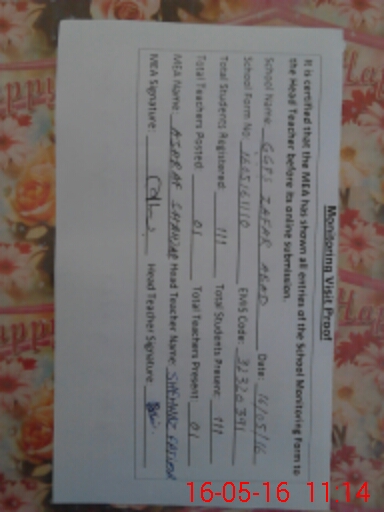 Monitoring Visit Proof
It is certified that the MEA has shown all entries of the School Monitoring Form to
the Head Teacher before its online submission.
School Name: GGPS ZAFAR ABAD Date: 16/05/16
School Form No: EMIS Code: 32320391
Total Students Registered: 111 Total Students Present: 111
Total Teachers Posted: 01 Total Teachers Present: 01
MEA Name: Head Teacher Name:
MEA Signature: Head Teacher Signature:
16-05-16 11:14